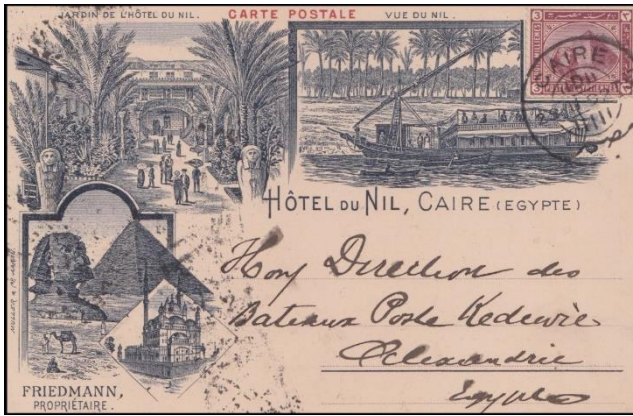 JARDIN DE L'HÔTEL DU NIL.
CARTE POSTALE
VUE DU NIL.
CAIRE
HÔTEL DU NIL, CAIRE (EGYPTE)
Hon͞f Direction des
Bateaux Poste Kedewie
Alexandrie
Egypte
FRIEDMANN,
PROPRIÉTAIRE.